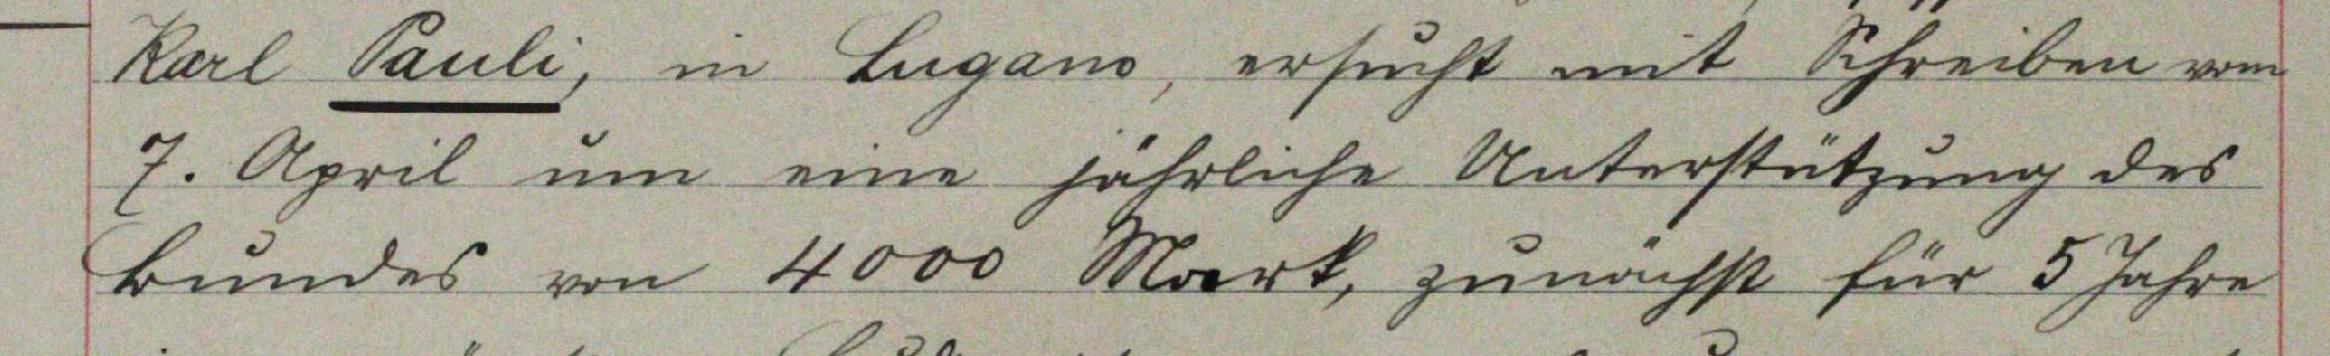 Karl Pauli, in Lugano, ersucht mit Schreiben vom
7. April um eine jährliche Unterstützung des
Bundes von 4000 Mark, zunächst für 5 Jahre